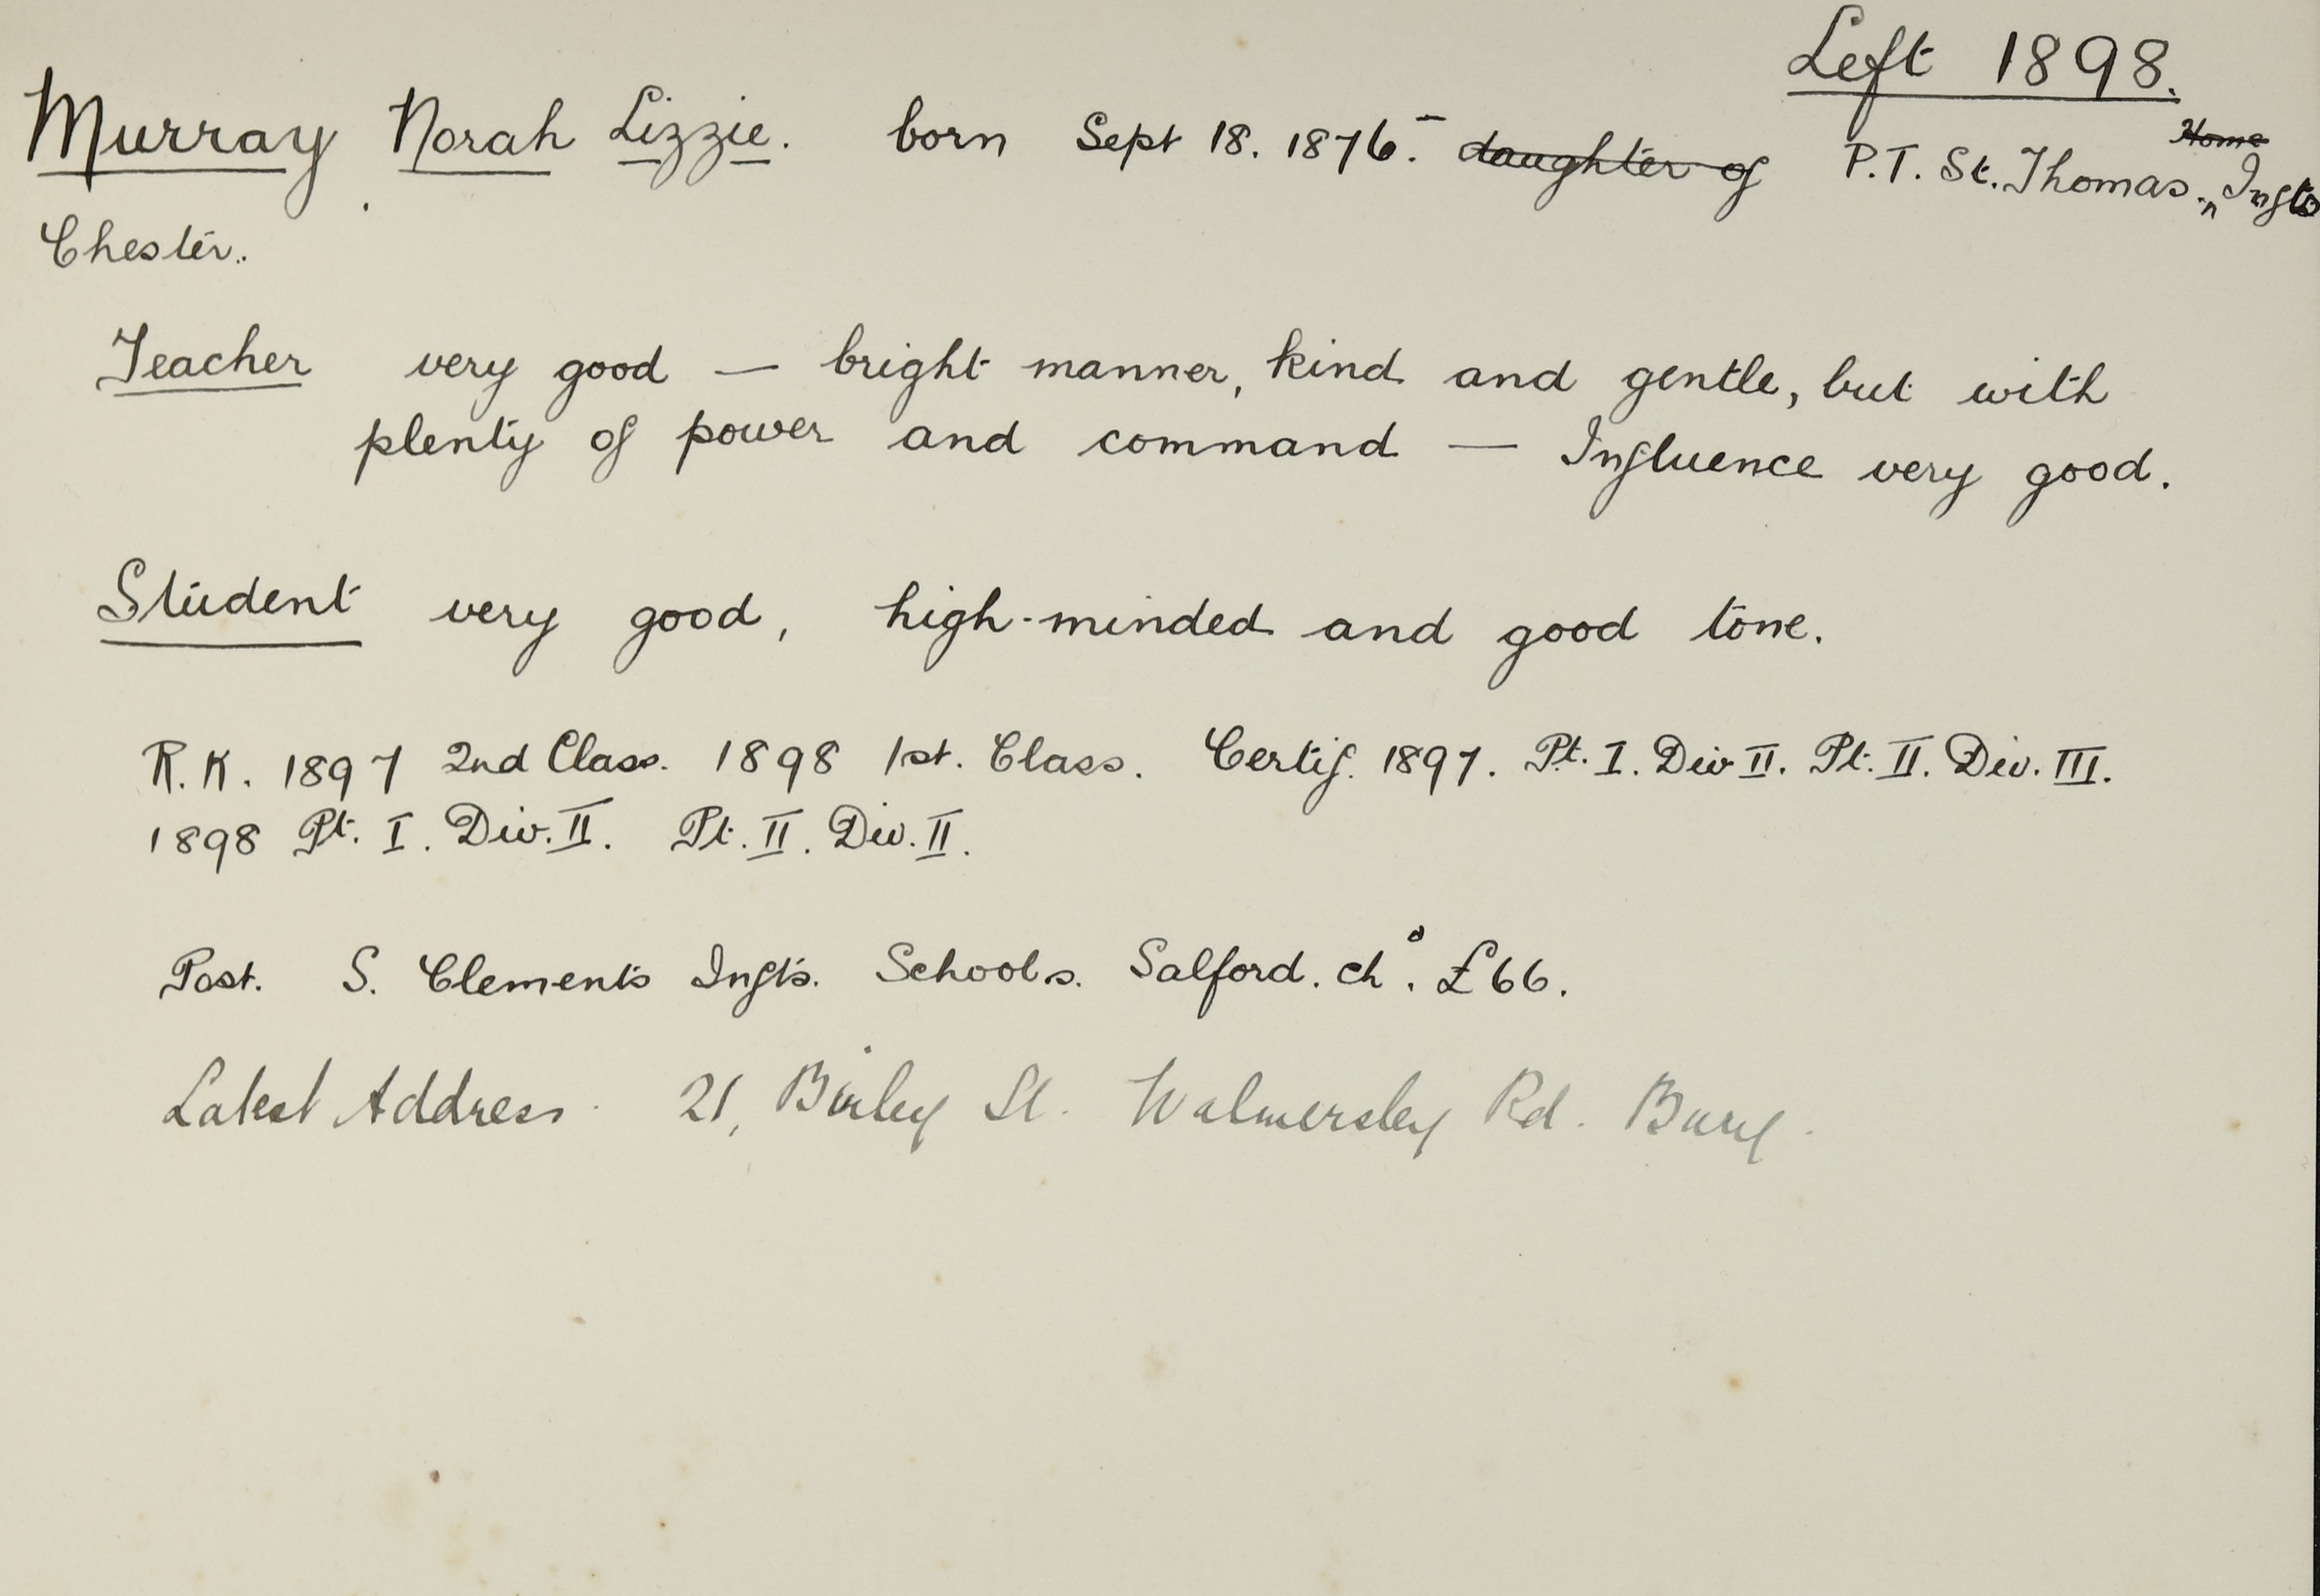 Left 1898.
Murray Norah Lizzie. born Sept 18. 1876. - daughter of P.T. St. Thomas. Home Infts
Chester.
Teacher very good — bright manner, kind and gentle, but with
plenty of power and command — Influence very good.
Student very good, high-minded and good tone.
R.K. 1897 2nd Class. 1898 1st. Class. Certif. 1897. Pt. I. Div II. Pt. II. Div. III.
1898 Pt. I. Div. II. Pt. II. Div. II.
Post. S. Clement's Infts. Schools. Salford. Ch<sup>d</sup>. £66.
Latest Address. 21, Birley St. Walmersley Rd. Bury.